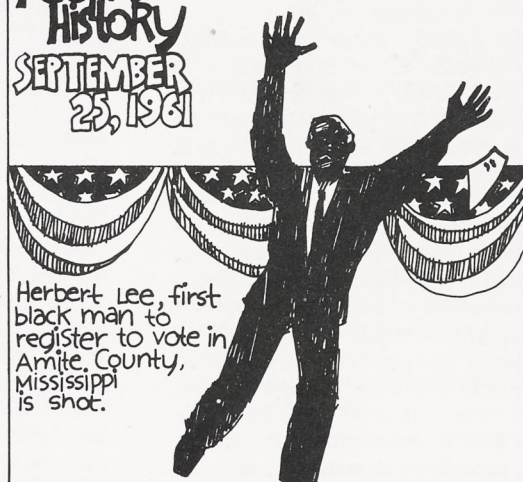 History
SEPTEMBER
25, 1961
Herbert Lee, first
black man to
register to vote in
Amite County,
Mississippi
is shot.